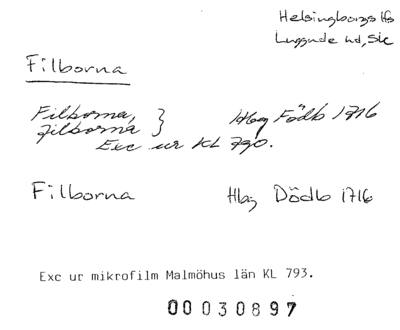 Helsingborgs lfs
Luggude hd, Sk
Filborna
Filborna, } Hbg Födb 1716
Filborna
Exc ur KL 790.
Filborna Hbg Dödb 1716
Exc ur mikrofilm Malmöhus län KL 793.
00030897